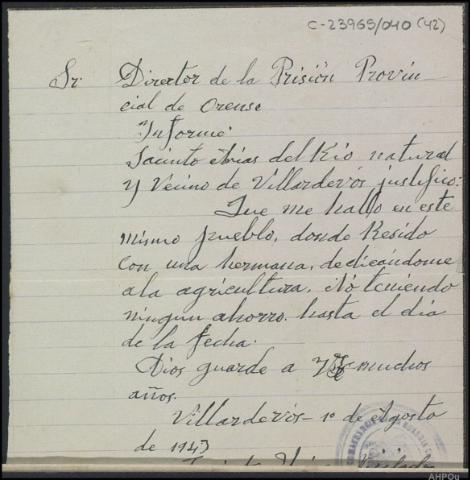 C-23965/040 (42)
Sr. Director de la Prisión Provin-
cial de Orense
Informe:
Jacinto Arias del Rio natural
y Vecino de Villardevós justifico:
Que me hallo en este
mismo pueblo, donde Resido
con una hermana, dedicandome
a la agricultura. No teniendo
ningun ahorro. hasta el dia
de la fecha.
Dios guarde a muchos
años.
Villardevós - 1º de Agosto
de 1943
AHPOu